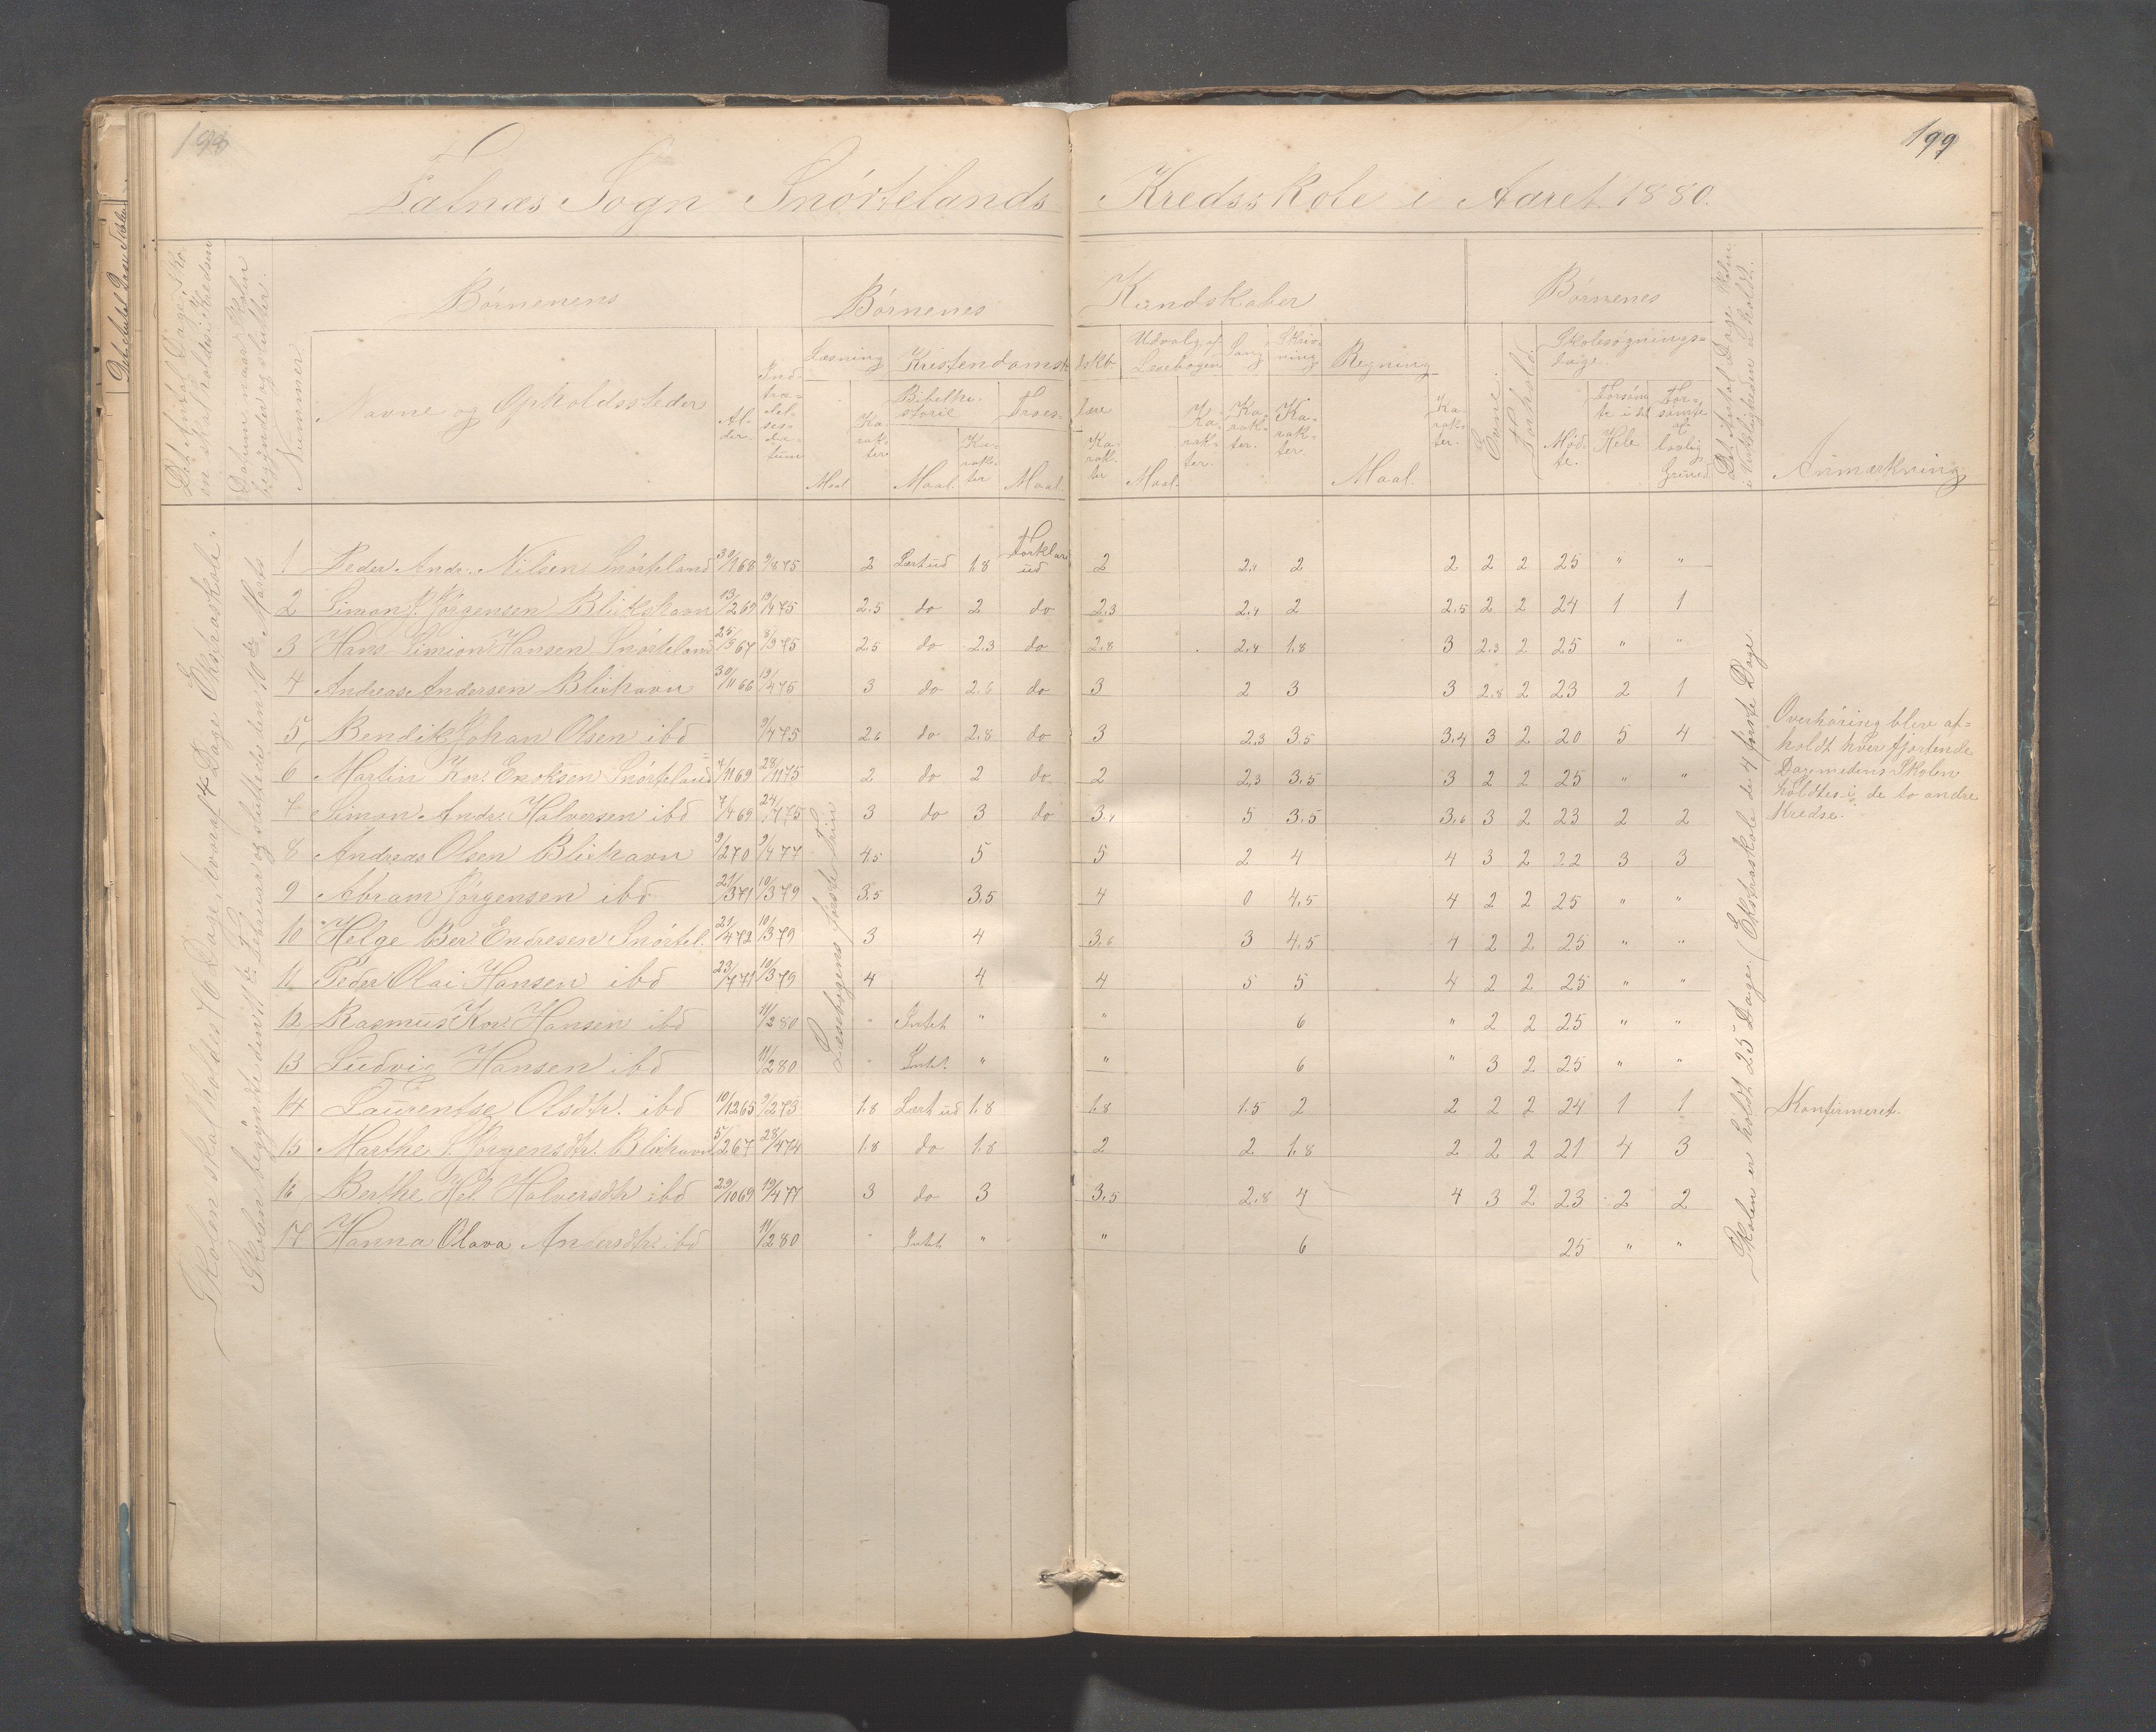 198
199
Falnæs Sogn Snørtelands Kredsskole i Aaret 1880.
Det Antal Dage, Sko-
len skal holdes i Kredsen
Datum, naar Skolen
begynder og slutter.
Nummer
Børnenens
Navne og Opholdssteder
Al-
der.
Ind-
træ-
del-
ses-
da-
tum
Børnenes Kundskaber
Læsning
Maal
Ka-
rak-
ter
Kristendomskdskb.
Bibelhi-
storie
Maal.
Ka-
rak-
ter
Troes-lære
Maal.
Ka-
rak-
ter
Udvalg af
Læsebogen
Maal.
Ka-
rak-
ter.
Sang
Ka-
rak-
ter.
Skriv-
ning
Ka-
rak-
ter.
Regning
Maal.
Ka-
rak-
ter.
Børnenes
Evne.
Forhold.
Skolesøgnings-
dage.
Mød-
te.
Forsøm-
te i det
Hele
For-
sømte
af
lovlig
Grund
Det Antal Dage Skolen
i Virkeligheden er holdt.
Anmærkning
Skolen skal holdes 76 Dage, hvoraf 4 Dage Ekstraskole.
Skolen begyndte den 11te Februar og sluttede den 10de Marts
Læsebogens første Trin
1 Peder Andr. Nilsen Snørteland 30/1 68 9/8 75 2 Lært ud 1.8 Forklar. ud 2 2.4 2 2 2 2 25 " "
2 Simon J. Jørgensen Blikshavn 13/2 69 19/4 75 2.5 do 2 do 2.3 2.4 2 2.5 2 2 24 1 1
3 Hans Simion Hansen Snørteland 25/8 67 8/3 75 2.5 do 2.3 do 2.8 2.4 1.8 3 2.3 2 25 " "
4 Andreas Andersen Blixhavn 30/11 66 19/4 75 3 do 2.6 do 3 2 3 3 2.8 2 23 2 1
5 Bendik Johan Olsen ibd 9/4 75 2.6 do 2.8 do 3 2.3 3.5 3.4 3 2 20 5 4
6 Martin Kor. Eriksen Snørteland 4/11 69 28/11 75 2 do 2 do 2 2.3 3.5 3 2 2 25 " "
7 Simon Andr. Halversen ibd 7/4 69 24/4 75 3 do 3 do 3.4 5 3.5 3.6 3 2 23 2 2
8 Andreas Olsen Blixhavn 9/2 70 9/4 77 4.5 5 5 2 4 4 3 2 22 3 3
9 Abram Jørgensen ibd 21/3 71 10/3 79 3.5 3.5 4 0 4.5 4 2 2 25 " "
10 Helge Ber. Endresen Snørtel. 21/4 72 10/3 79 3 4 3.6 3 4.5 4 2 2 25 " "
11 Peder Olai Hansen ibd 23/7 71 10/3 79 4 4 4 5 5 4 2 2 25 " "
12 Rasmus Kor. Hansen ibd 11/2 80 " Intet " " 6 " 2 2 25 " "
13 Ludvig Hansen ibd 11/2 80 " Intet " " 6 " 3 2 25 " "
14 Laurentse Olsdtr. ibd 10/12 65 9/2 73 1.8 Lært ud 1.8 1.8 1.5 2 2 2 2 24 1 1 Konfirmeret.
15 Marthe S. Jørgensdtr. Blixhavn 5/2 67 28/4 74 1.8 do 1.8 2 2 1.8 2 2 2 21 4 3
16 Berthe Hel. Halversdtr ibd 29/10 69 19/4 77 3 do 3 3.5 2.8 4 4 3 2 23 2 2
17 Hanna Olava Andersdtr. ibd 11/2 80 " Intet " " 6 25 " "
Skolen er holdt 25 Dage. (Ekstraskole de 4 første Dage
Overhøring blev af-
holdt hver fjortende
Dag medens Skolen
holdtes i de to andre
Kredse.